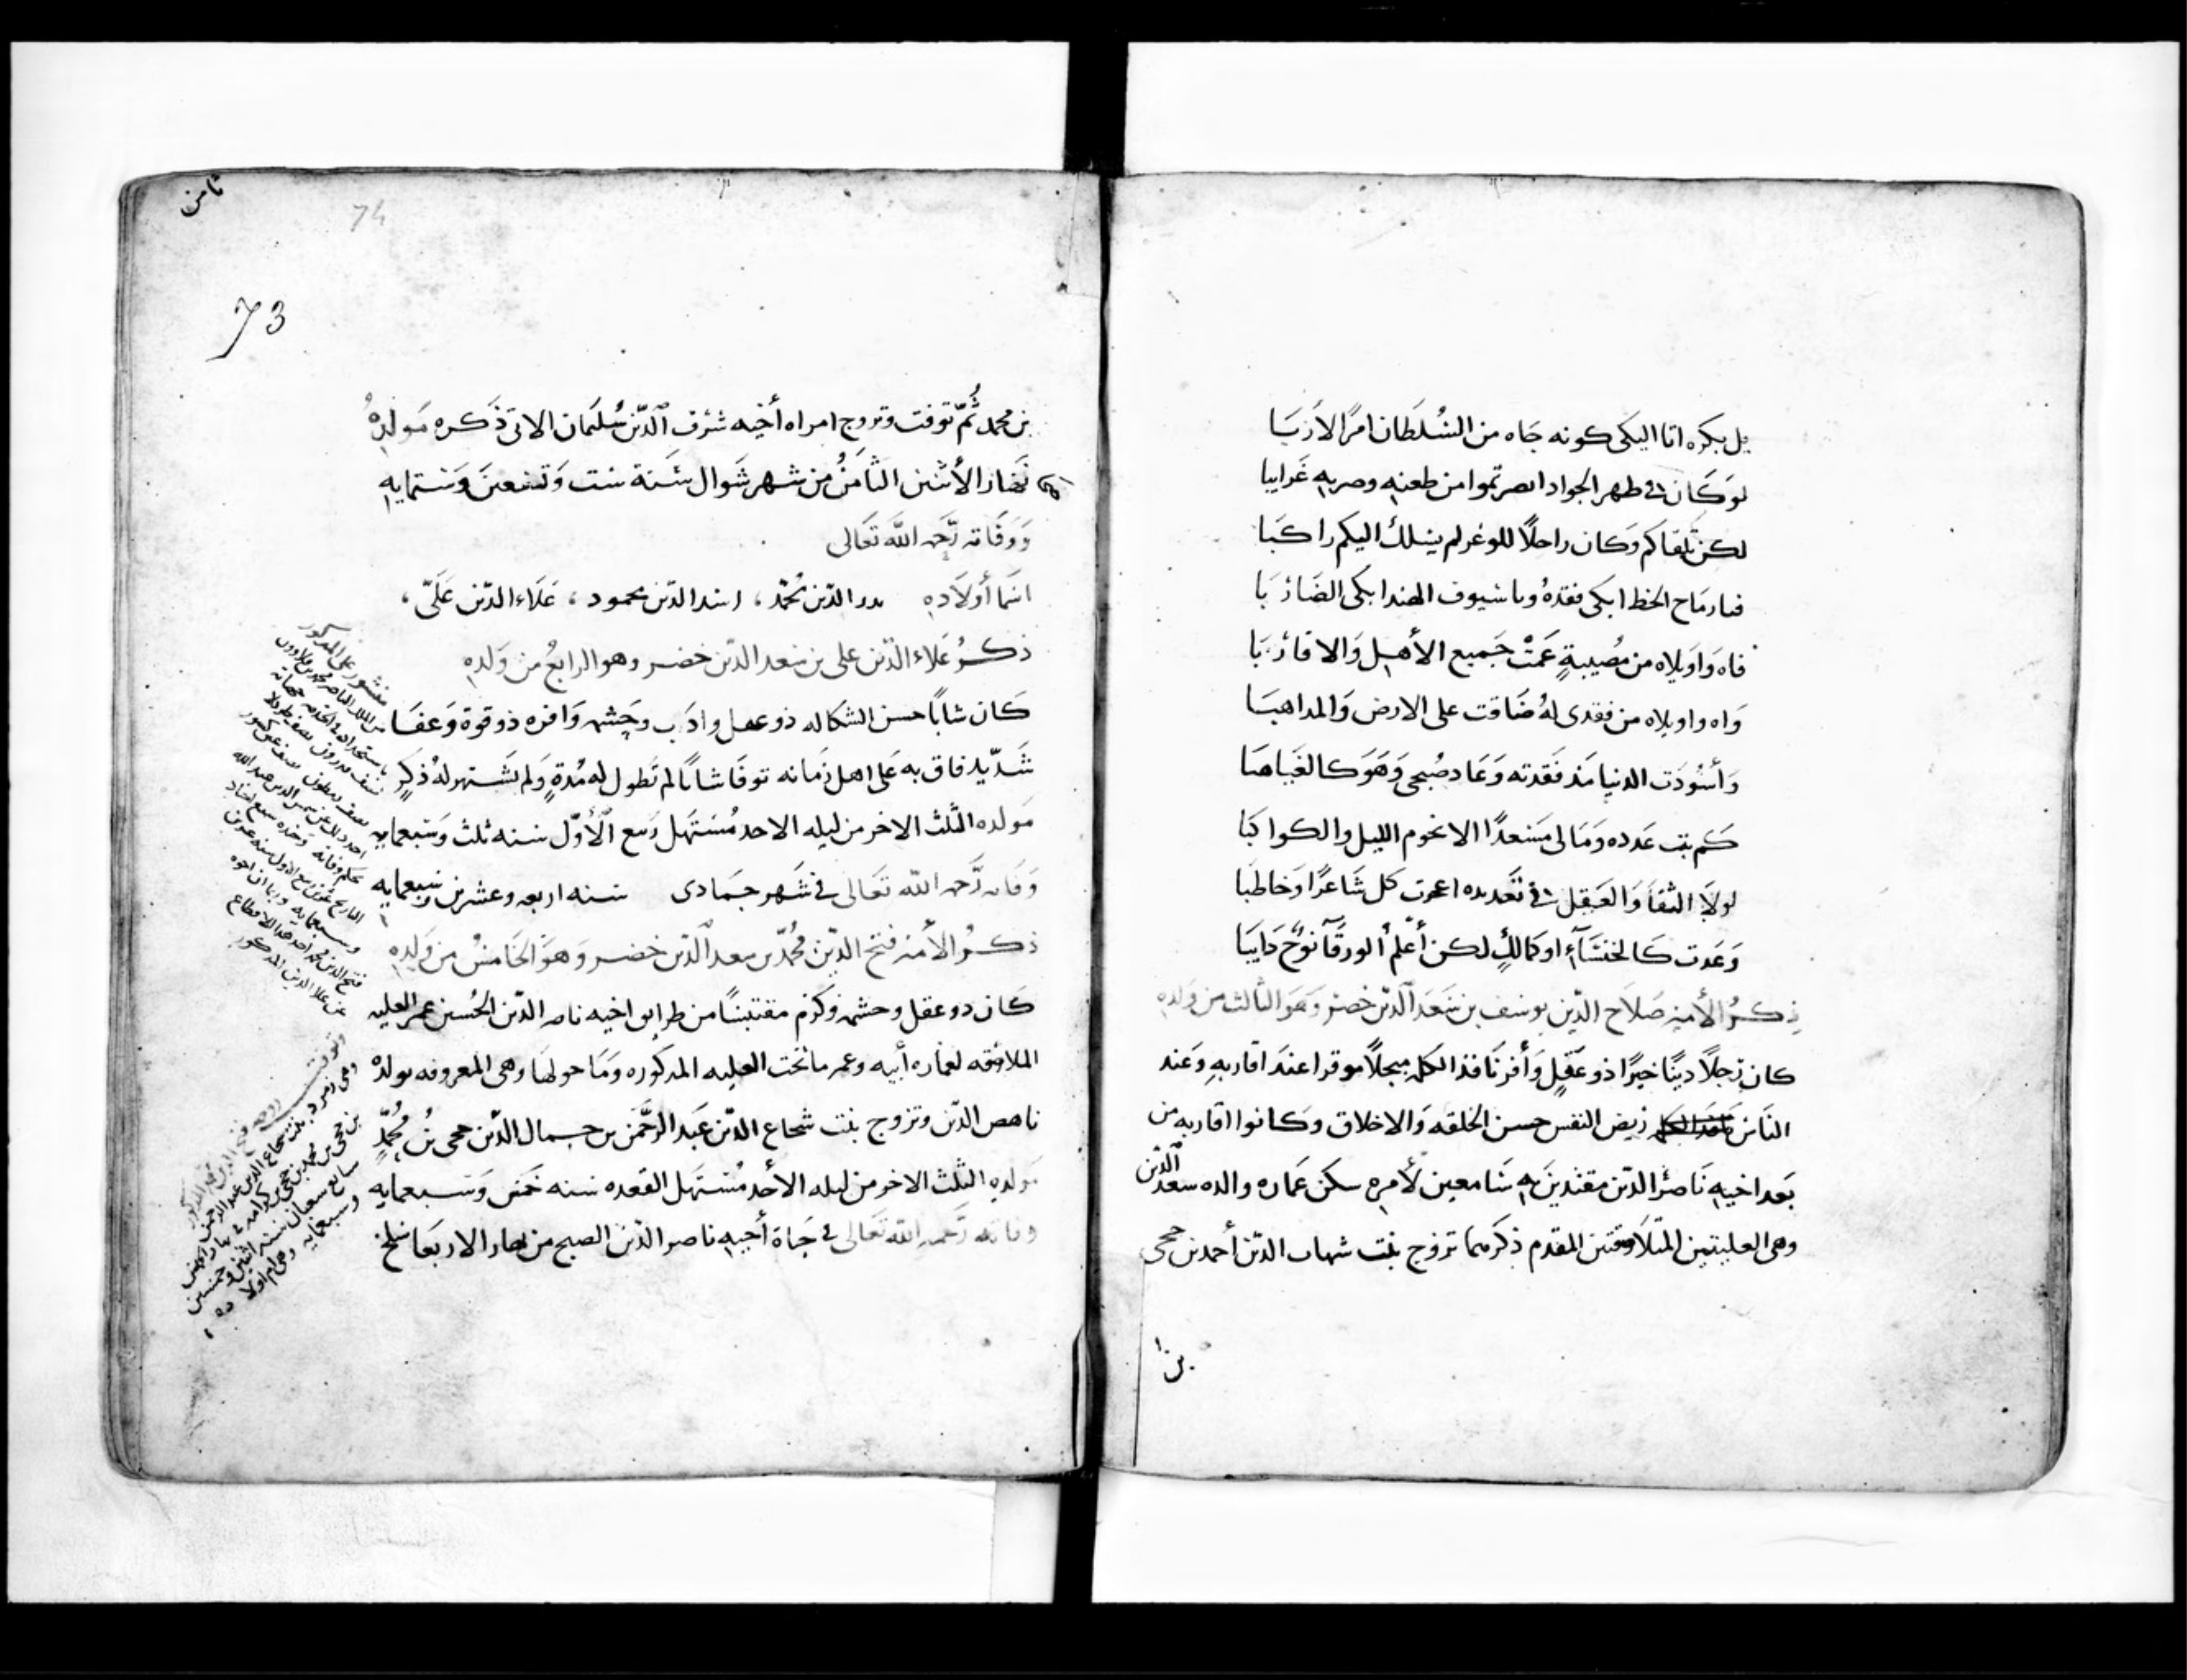 بل بكره اتا اليكى كونه جاه من السُلطان امرًا لازبَا
لو كان فى ظهر الجواد ابصرتموا من طعنه وضربه غرايبا
لكن تلقاكم وكان راحلًا للوغر لم يسلك اليكم راكبَا
فيا رماح الخط ابكى فقدهُ ويا سيوف الهند ابكى الضاربَا
فاه واويلاه من مُصيبةٍ عمَّتْ جميع الأهل والاقاربَا
واه واويلاه من فقدى لهُ ضاقت على الارض والمداهبَا
وأسْودَت الدنيا مَذ فقدته وعاد صُبحى وهو كالغياهبَا
كم بت عدده ومالى مسعدًا الا نجوم الليل والكواكبَا
لولا التقا والعقل فى تعديده اعجزت كل شاعرًا وخاطبَا
وعدت كالخنسآءِ او كمالكٍ لكن أعلم الورقآ نوحٌ دايبَا
ذكرُ الأمير صلاح الدّين يوسف بن سَعد الدّين خضر وهو الثالث من ولده
كان رجلًا دينًا خيرًا ذو عقلٍ وأفر نافذ الكلمه مبجلًا موقرا عند اقاربهِ وعند
الناس رَيض النفس حسن الخلقه والاخلاق وكانوا اقاربه من
بعد اخيهِ ناصر الدّين مقتدين به سامعين لأمره سكن عماره والده سعد الدّين
وهى العليتين المتلاصقتين المقدم ذكرهما تزوج بنت شهاب الدّين أحمد بن حجى
بن
ثامن
74
73
بن محمد ثُمّ توفت وتزوج امراه أخيه شرف الدّين سُليمان الاتى ذكره مولدهُ
نهار الأثنين الثامنُ من شهر شوال سَنة ست وتسعين وستمايه
ووفاته رَحمه الله تعالى
اسَما أولاده بدر الدّين مُحمّد، اسد الدّين محمود، علاء الدّين علىّ،
ذكرُ علاء الدّين على بن سعد الدّين خضر وهو الرابعُ من ولده
كان شابًا حسن الشكاله ذو عقل وادَب وحِشمه وافره ذو قوة وعفَا
شديد فاق به على اهل زمانه توفا شابًا لم تطول له مُدةٍ ولم تشتهر لهُ ذكرٍ
مولده الثلث الاخر من ليله الاحد مُستهل ربيع الأوّل سنه ثلث وسَبعمايه
وفاته رَحمه الله تعالى فى شهر جمادى سنه اربعه وعشرين وسبعمايه
ذكرُ الأمير فتح الدّين مُحمّد بن سعد الدّين خضر وهوَ الخامسُ من ولده
كان ذو عقل وحشمه وكرم مقتبسًا من طرايق اخيه ناصر الدّين الحُسين عمر العليه
الملاصقه لعماره أبيه وعمر ما تحت العليه المذكوره وما حولها وهى المعروفه بولده
ناهض الدّين وتزوج بنت شجاع الدّين عبد الرّحمَن بن جمال الدّين حجى بنُ مُحمّدٍ
مولده الثلث الاخر من ليله الأحد مُستهل القعده سنه خمس وسبعمايه
وفاته رَحمه الله تعالى فى حياة أخيه ناصر الدّين الصبح من نهار الاربعا سلخ
منشور على المذكور
من الملك الناصر محمد بن قلاوون
فتح الدين محمد اخذ هذا الاقطاع
عن علا الدين المذكور
وتوفت زوجه فتح الدين محمد المذكور
وهى زمرد بنت شجاع الدين عبد الرحمن
بن حجى بن محمد بن حجى بن كرامه فى نهار الخميس
سابع شعبان سنه اثنين وخمسين
وسبعمايه وهى ام اولاده،